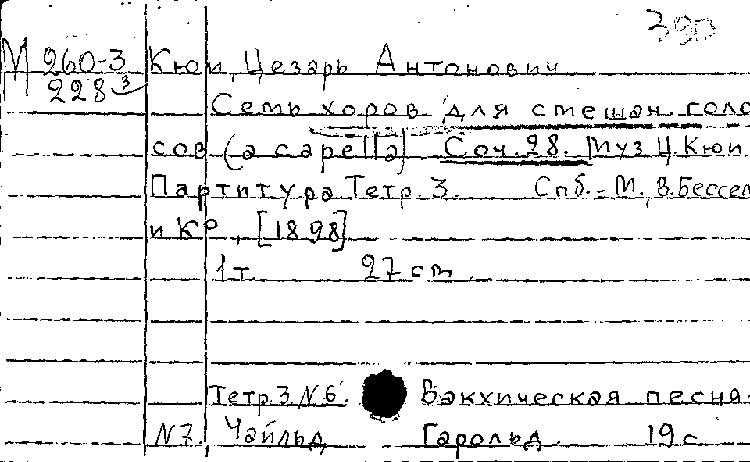 М 260-3 Кюи, Цезарь Антонович
228 3
Семь хоров для смешан. голо
сов (a capella) Соч. 28. Муз Ц. Кюи.
Партитура Тетр. 3. Спб. - М., В. Бессел
и К°, [1898]
1 т. 27 cm.
Тетр. 3 N 6. Вакхическая песня.
N 7. Чайльд Гарольд 19 с